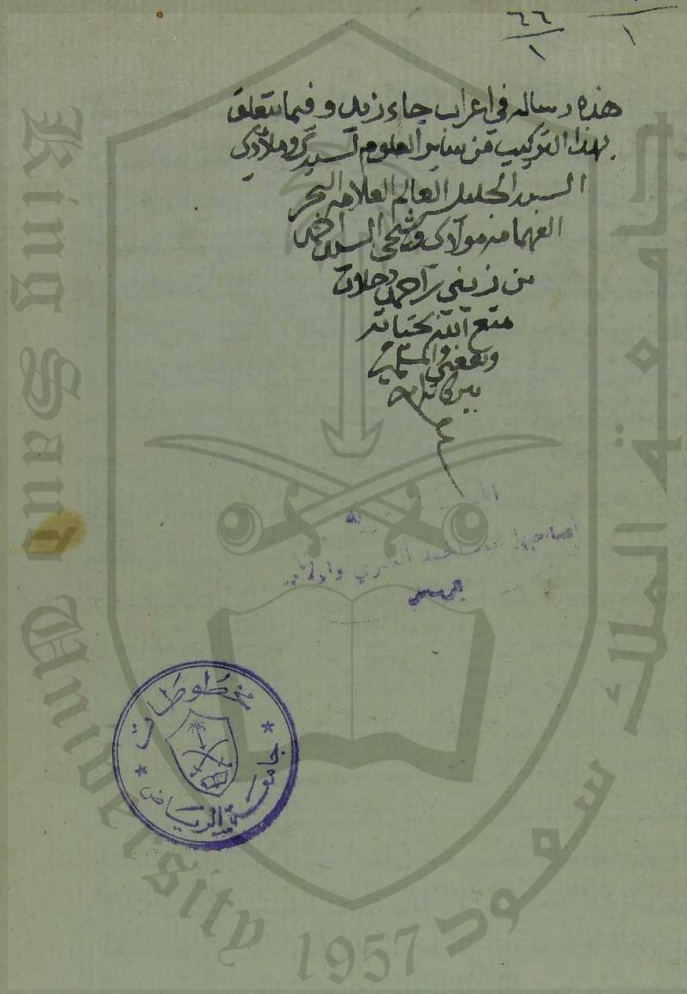 ٦٦
١
١
هذه رساله في اعراب جاء زيد وفيما يتعلق
بهذا التركيب من ساير العلوم لسيدي وملاذي
السيد الجليل العالم العلامه البحر
الفهامه مولاي وشيخي السيد احمد
بن زيني احمد دحلان
متع الله بحياته
ونفعني والمسلمين
ببركاته
امين
مخطوطات
جامعة الرياض
King Saud University 1957
جامعة الملك سعود